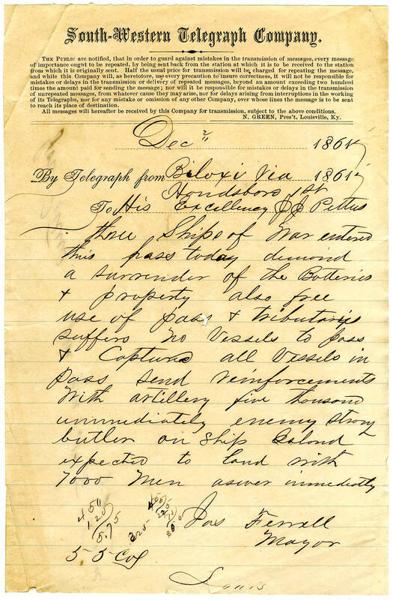 South-Western Telegraph Company.
THE PUBLIC are notified, that in order to guard against mistakes in the transmission of messages, every message
of importance ought to be repeated, by being sent back from the station at which it is to be received to the station
from which it is originally sent. Half the usual price for transmission will be charged for repeating the message,
and while this Company will, as heretofore, use every precaution to insure correctness, it will not be responsible
for mistakes or delays in the transmission or delivery of repeated messages, beyond an amount exceeding two hundred
times the amount paid for sending the message; nor will it be responsible for mistakes or delays in the transmission
of unrepeated messages, from whatever cause they may arise, nor for delays arising from interruptions in the working
of its Telegraphs, nor for any mistake or omission of any other Company, over whose lines the message is to be sent
to reach its place of destination.
All messages will hereafter be received by this Company for transmission, subject to the above conditions.
N. GREEN, Pres't, Louisville, Ky.
Dec 186
By Telegraph from Biloxi Via 1861
Handsboro 1st
To His Excellency JJ Pettus
three Ships of War entered
this pass today demand
a surrender of the Batteries
& property also free
use of pass & tributaries
suffers no Vessels to pass
& Captures all Vessels in
pass send reinforcements
With artillery five thousand
immediately enemy strong
butler on Ship Island
expected to land with
7000 Men answer immediately
Jas Ferrall
Mayor
5.75
55 Col